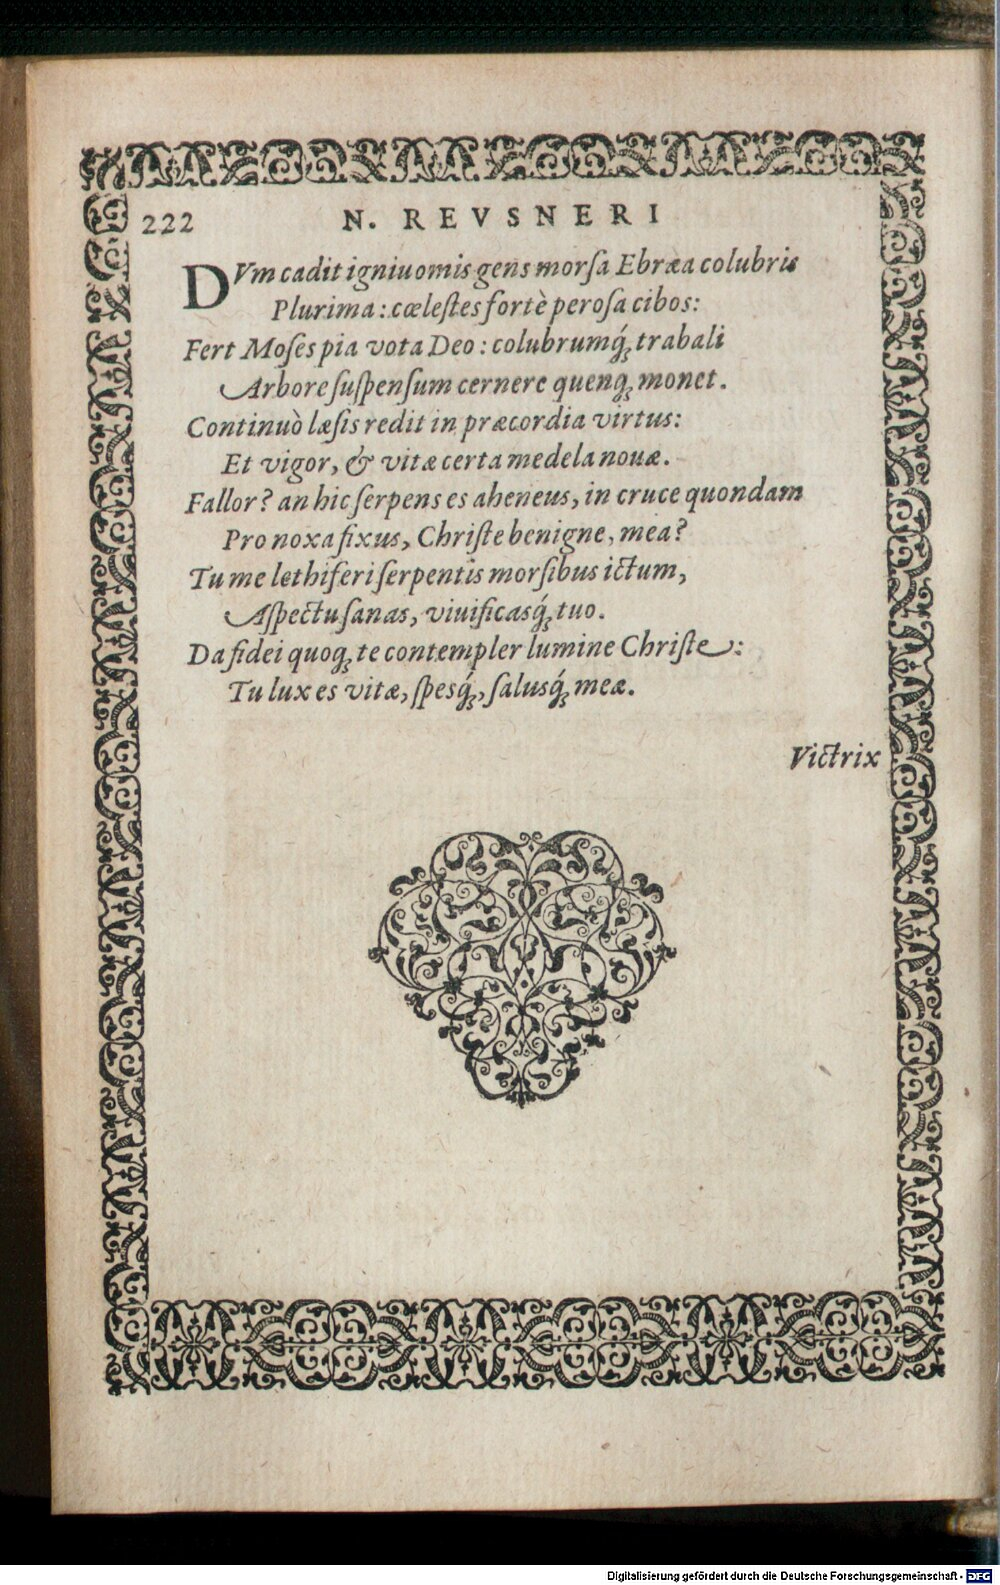 222 N. REVSNERI
DVm cadit igniuomis gens morſa Ebræa colubris
Plurima: cœleſtes fortè peroſa cibos:
Fert Moſes pia vota Deo: colubrumq́ꝫ trabali
Arbore ſuſpenſum cernere quenqꝫ monet.
Continuò læſis redit in præcordia virtus:
Et vigor, & vitæ certa medela nouæ.
Fallor? an hic ſerpens es aheneus, in cruce quondam
Pro noxa fixus, Chriſte benigne, mea?
Tu me lethiferi ſerpentis morſibus ictum,
Aſpectu ſanas, viuificasq́ꝫ tuo.
Da fidei quoqꝫ te contempler lumine Chriſte:
Tu lux es vitæ, ſpesq́ꝫ, ſalusq́ꝫ meæ.
Victrix
Digitalisierung gefördert durch die Deutsche Forschungsgemeinschaft - DFG